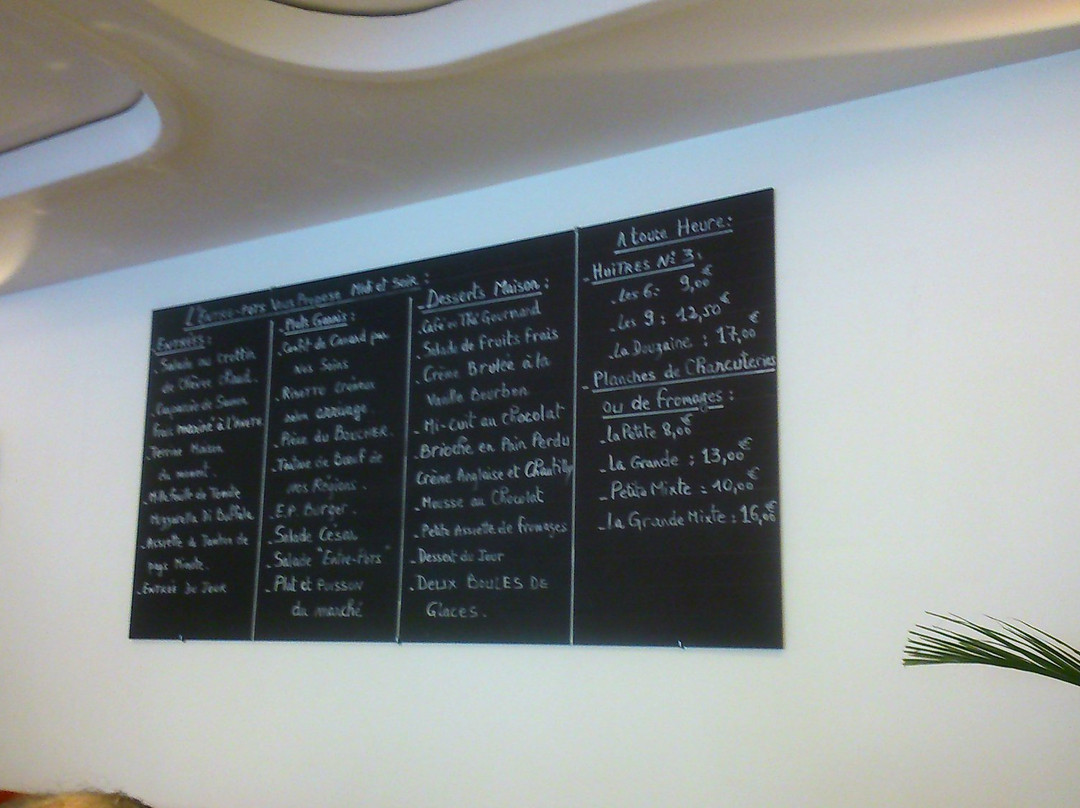 L'Entre-Pots Vous Propose Midi et Soir :
ENTRÉES :
- Salade au crottin
de Chèvre chaud.
- Carpaccio de Saumon
frais mariné à l'Aneth
- Terrine Maison
du moment.
- Millefeuille de Tomate
Mozzarella Di Buffala
- Assiette de Jambon de
pays Minute.
- Entrée du Jour
- Plats Garnis :
- Confit de Canard par
nos Soins
- Risotto Crémeux
selon arrivage.
- Pièce du BOUCHER.
- Tartare de Bœuf de
nos Régions.
- E.P. Burger.
- Salade César
- Salade "Entre-Pots"
- Plat et Poisson
du marché
- Desserts Maison :
- Café ou Thé Gourmand
- Salade de Fruits Frais
- Crème Brulée à la
Vanille Bourbon
- Mi-cuit au chocolat
- Brioche en Pain Perdu
Crème Anglaise et Chantilly
- Mousse au Chocolat
- Petite Assiette de fromages
- Dessert du Jour
- DEUX BOULES DE
Glaces.
A toute Heure :
- HUÎTRES N° 3 :
- Les 6 : 9,00€
- Les 9 : 12,50€
- La Douzaine : 17,00€
- Planches de Charcuteries
ou de fromages :
- La Petite 8,00€
- La Grande : 13,00€
- Petite Mixte : 10,00€
- La Grande Mixte : 16,00€